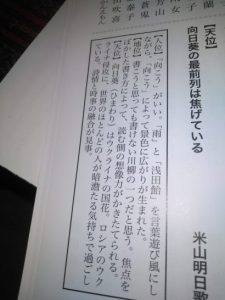 【天位】
向日葵の最前列は焦げている
米山明日歌
【人位】「向こう」がいい。「雨」と「浅田飴」を言葉遊び風にし
ながら、「向こう」によって景色に広がりが生まれた。
【地位】書こうと思っても書けない川柳の一つだと思う。焦点を
ぼかした書き方によって、読む側の想像力がかきたてられる。
【天位】向日葵（ひまわり）はウクライナの国花。ロシアのウク
ライナ侵攻に、世界のほとんどの人が暗澹たる気持ちで過ごし
ている。詩情と時事の融合が見事。